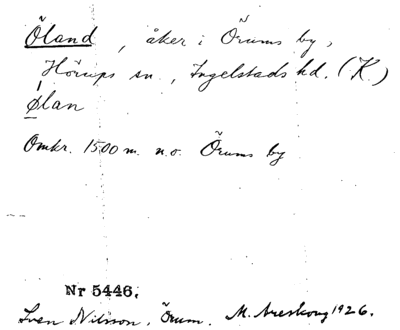 Öland, åker i Örums by,
Hörups sn., Ingelstads hd. (K)
Ølan
Omkr. 1500 m. n.o. Örums by
Nr 5446.
Sven Nilsson, Örum. M. Areskoug 1926.